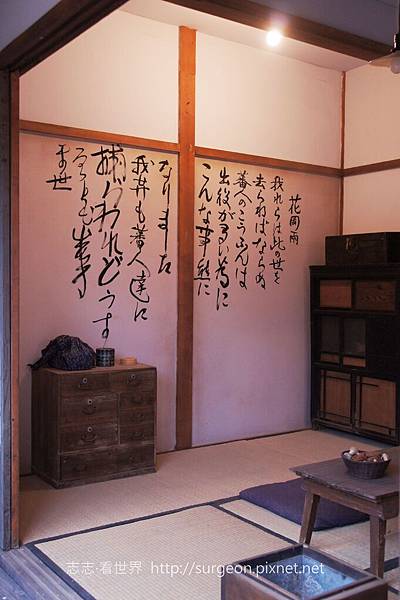 花岡両
我れらは此の世を
去らねばならぬ
蕃人のこうふんは
出役が多い為に
こんな事件に
なりました
我等も蕃人達に
捕らわれどうす
ることも出来
ませ
志志·看世界 http://surgeon.pixnet.net